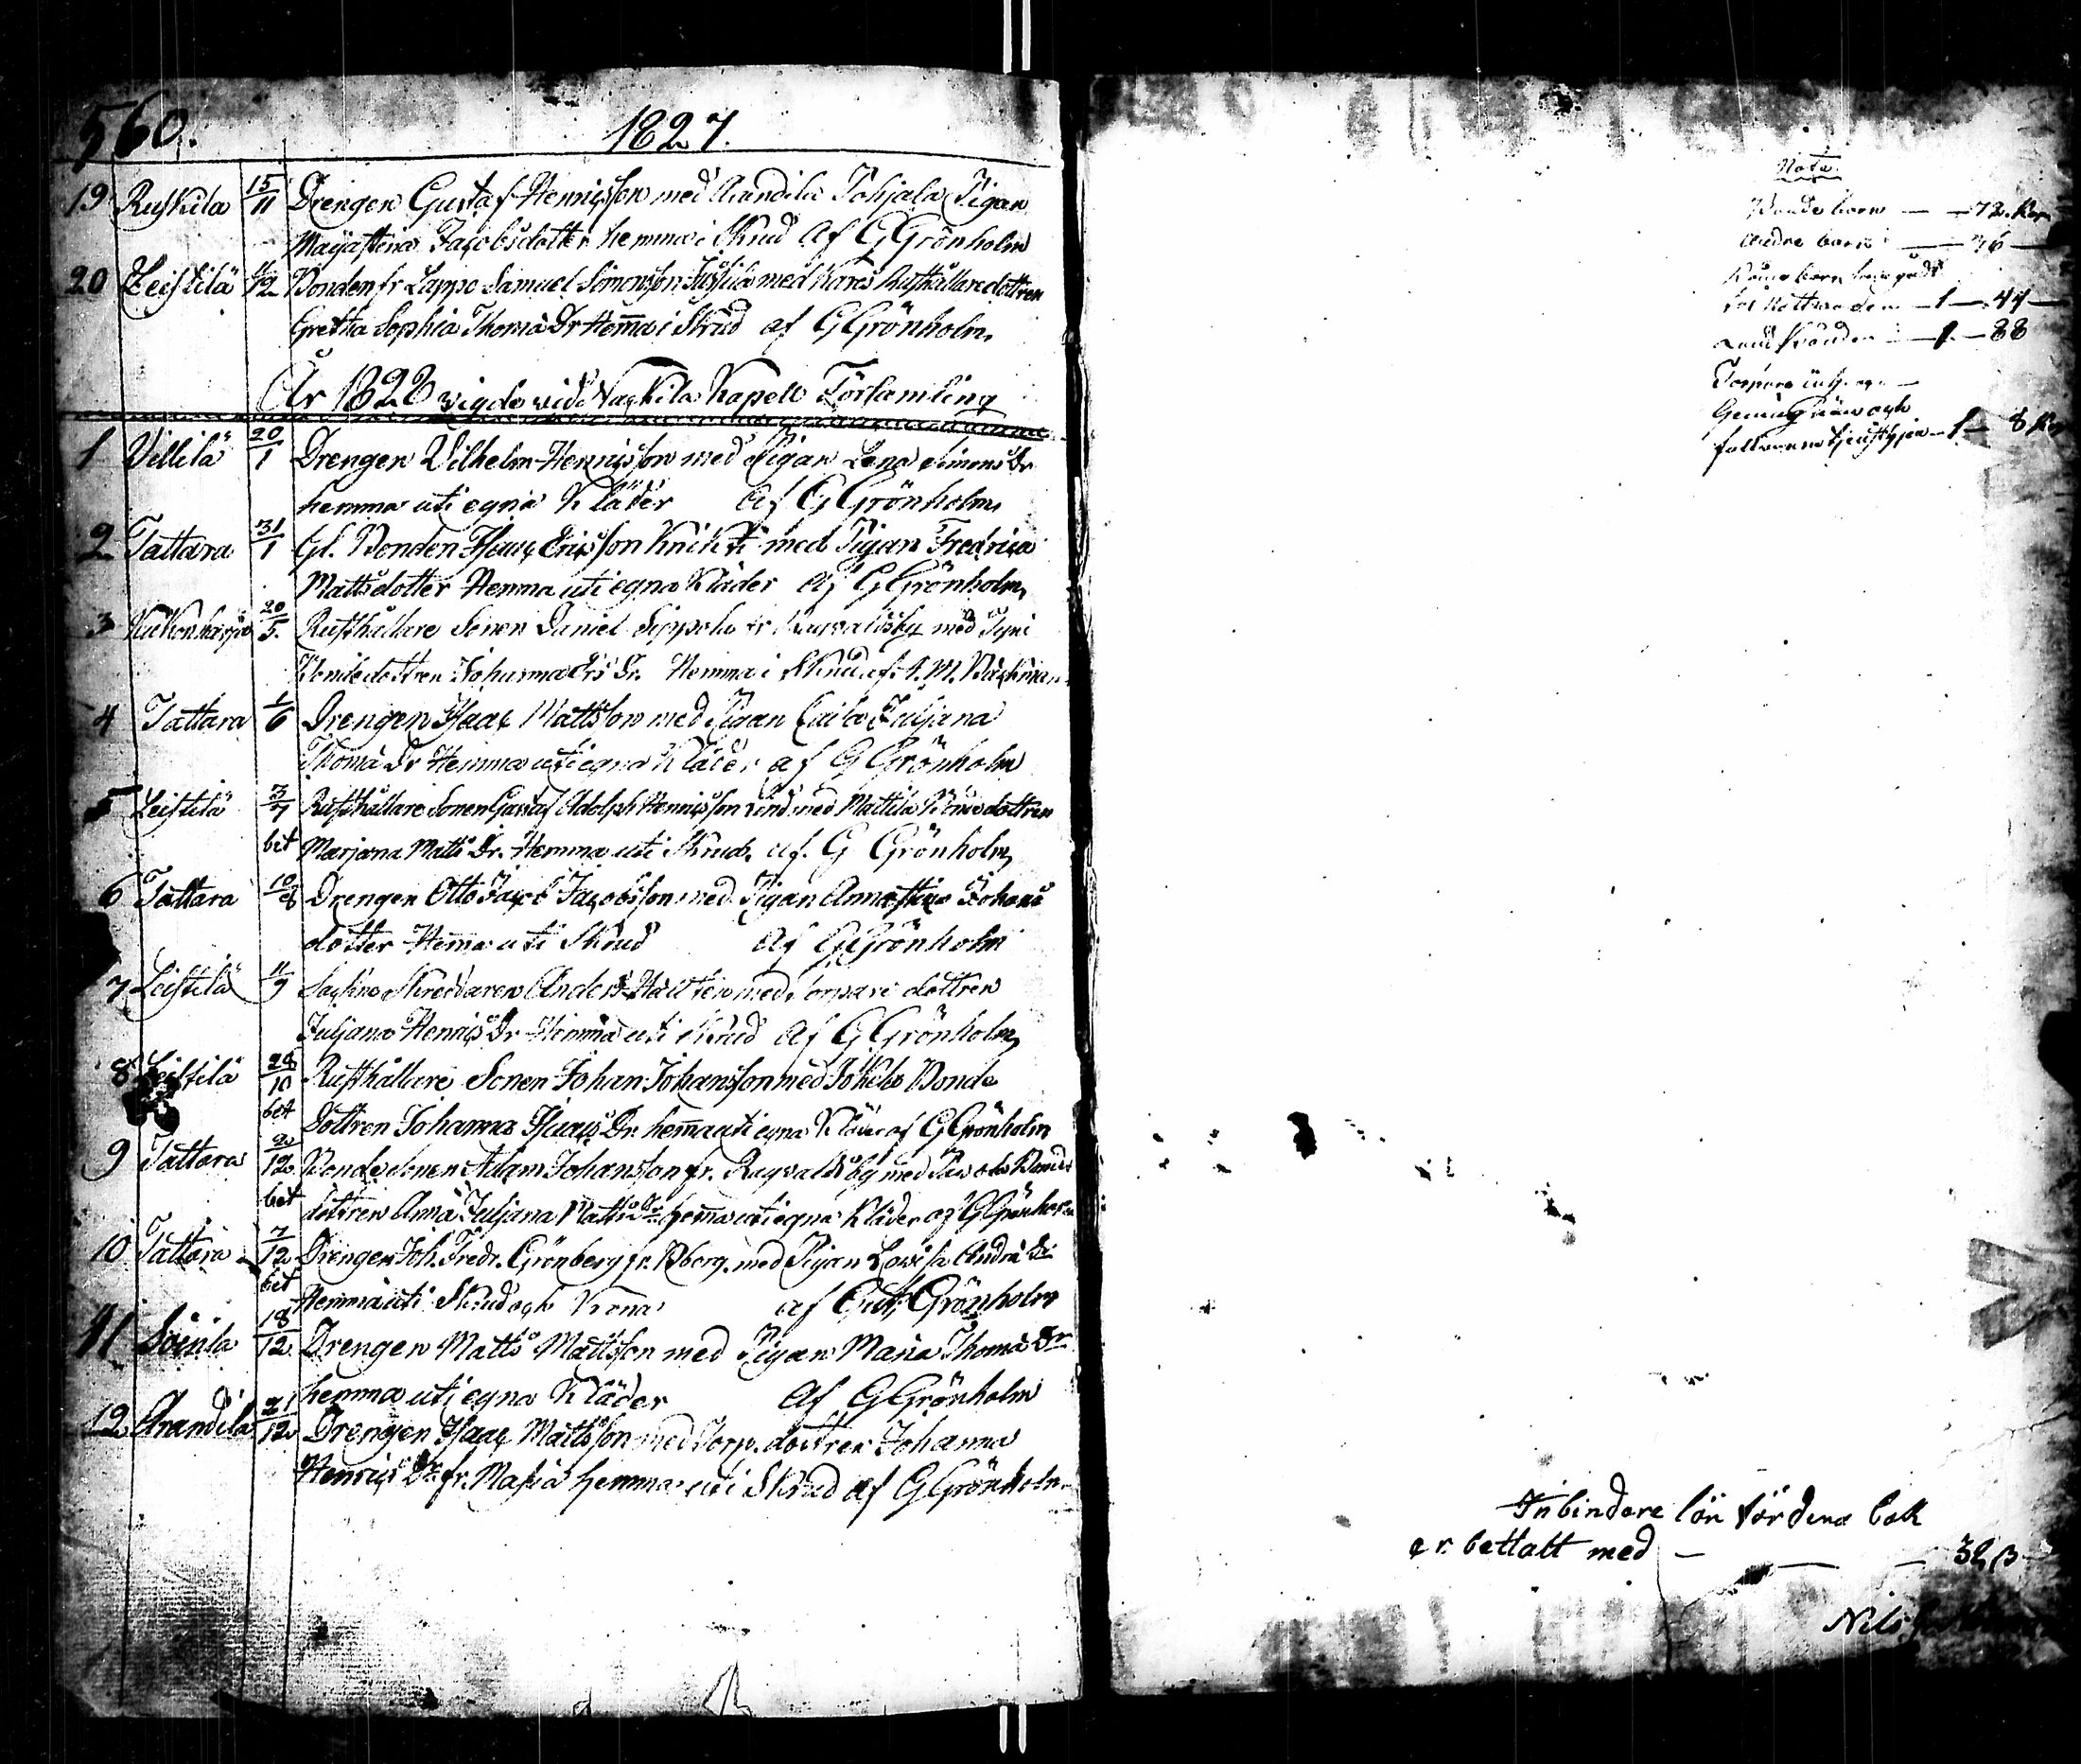 560. 1827.
19 Ruskila 15/11 Drengen Gustaf Henricsson med Arandila Pohjala Pigan
Majastina Jacobsdotter hemma i Skrud af G Grönholm
20 Leistilä /12 Bonden fr Lappo Samuel Simonsson med Rusthållaredottren
Gretha Sophia Thomæ Dr Hem̄a i Skrud af G Grönholm.
År 1828 vigde vid Nackila Kapell Församling
1 Villilä 20/1 Drengen Vilhelm Henricsson med Pigan Lena Simons Dr
hemma uti egna Kläder af G Grönholm
2 Tattara 31/1 Gl. Bonden Isaac Ericsson Knihti med Pigan Fredrica
Mattsdotter Hemma uti egna Kläder af G Grönholm
3 20/5 Rusthållare Sonen Daniel Sippola fr Ragvaldsby med
dottren Johanna Ers Dr. Hemma i Skrud af. M. Bäckman
4 Tattara 1/6 Drengen Isaac Mattsson med Pigan Caisa Juljana
Thomæ Dr Hemma uti egna Kläder af G Grönholm
5 Leistilä 3/7 Rusthållare Sonen Gustaf Adolph Henricsson med Mattila Bonde dottren
bet Marjana Matts Dr. Hemma uti Skrud. af. G Grönholm
6 Tattara 10/8 Drengen Otto Jacob Jacobsson med Pigan Annastina Johans
dotter Hem̄a uti Skrud af G Grönholm
7 Leistilä 11/9 Sockne Skreddaren Anders med Torpare dottren
Juljana Henrics Dr Hemma uti Skrud af G Grönholm
8 Leistilä 28/10 Rusthållare Sonen Johan Johansson med Bonde
bet Dottren Johanna Isaacs Dr. hem̄a uti egna Kläder af G Grönholm
9 Tattara 2/12 Bonde Sonen Adam Johansson fr. Ragvaldsby med Bonde
bet dottren Anna Juljana Matts Dr hem̄a uti egna Kläder af G Grönholm
10 Tattara 7/12 Drengen Joh. Fredr. Grönberg fr. Bborg. med Pigan Lovisa Andræ Dr
bet Hemma uti Skrud och Krona af Gust. Grönholm
11 Soinila 18/12 Drengen Matts Mattsson med Pigan Maria Thomæ Dr
hemma uti egna Kläder af G Grönholm
12 Arandila 21/12 Drengen Isaac Mattsson med Torp. dottren Johanna
Henrics Dr fr. Masia hemma uti Skrud af G Grönholm
Nota.
Bonde barn — 72. Kop
Andre barn — 36 —
— 1 — 44 —
— 1 — 88
— 1 — 8 Kop
Inbindare lön för denna bok
er bettalt med — — — 32 β
Nils